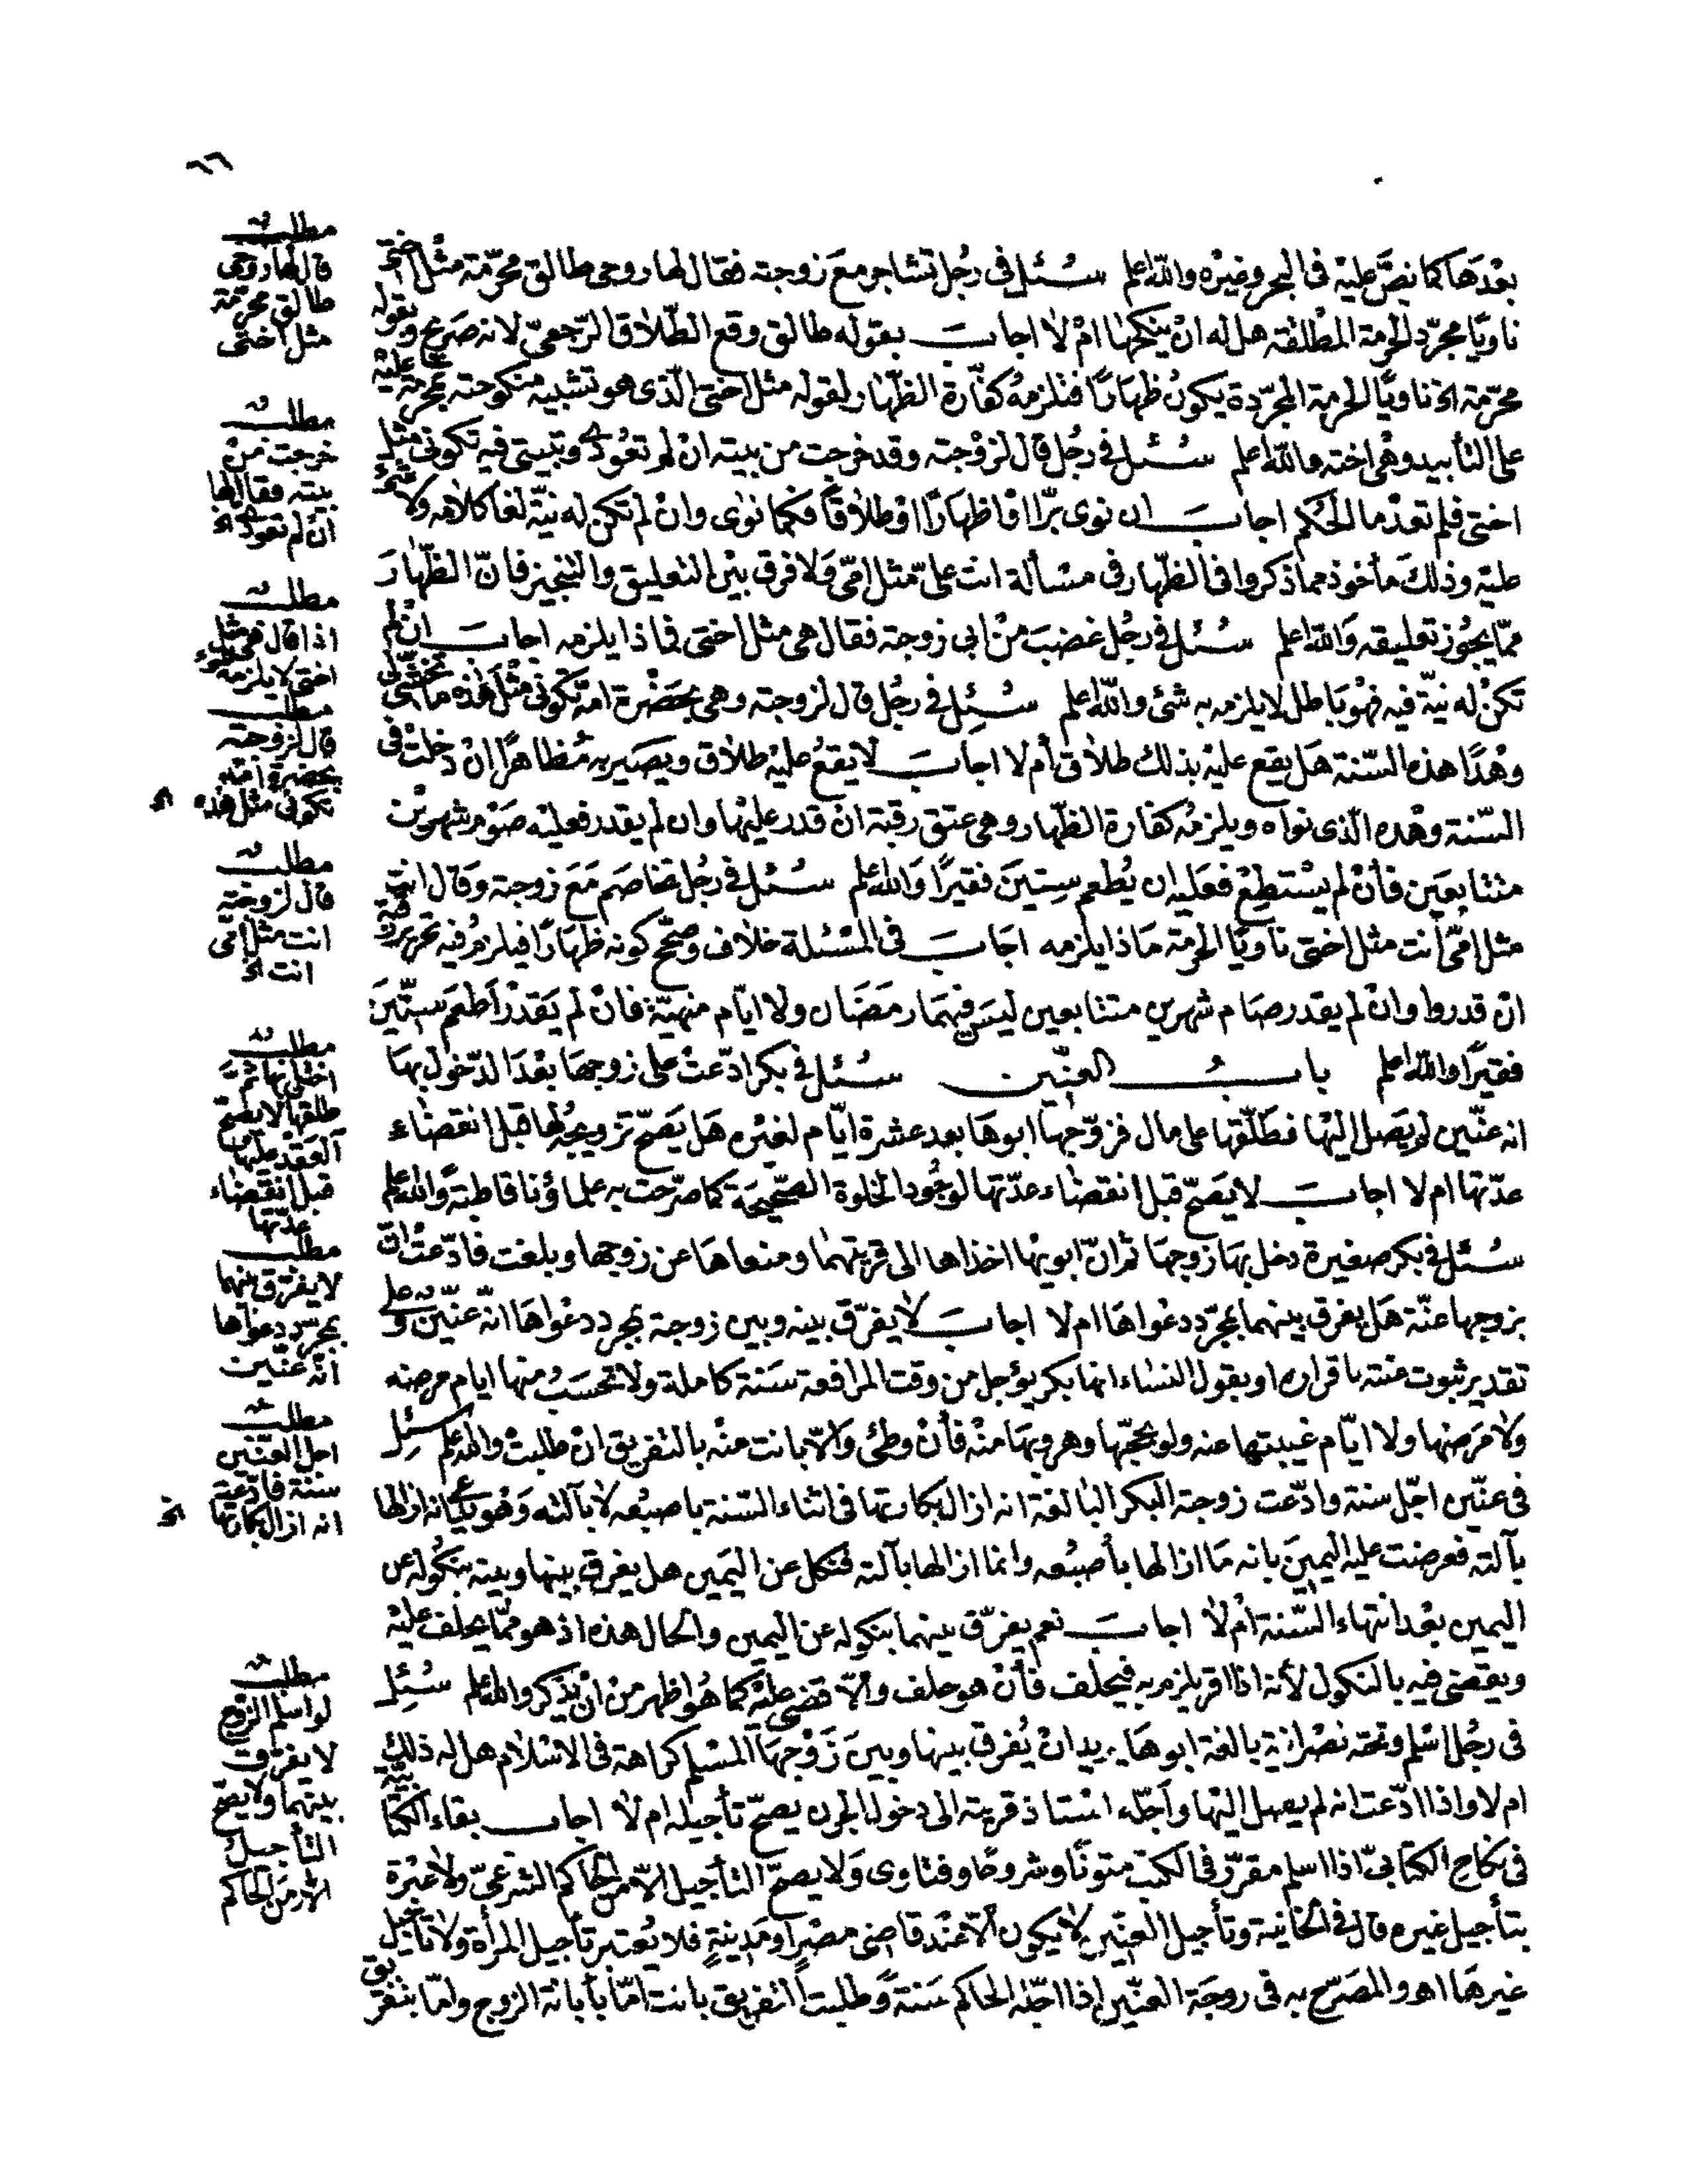 ٦٦
بعدها كما نص عليه في البحر وغيره والله اعلم سئل في رجل تشاجر مع زوجته فقال لها روحي طالق محرمة مثل اختي
ناويا مجرد الحرمة المطلقه هل له ان ينكحها ام لا اجاب بقوله طالق وقع الطلاق الرجعي لانه صريح وبقوله
محرمة الخ ناويا الحرمة المجردة يكون ظهارا فتلزمه كفارة الظهار لقوله مثل اختي الذي هو تشبيه منكوحته بمحرمة عليه
على التأبيد وهي اخته والله اعلم سئل في رجل قال لزوجته وقد خرجت من بيته ان لم تعودي وتبيتي فيه تكوني مثل
اختي فلم تعد ما الحكم اجاب ان نوى برا او ظهارا او طلاقا فكما نوى وان لم تكن له نية لغا كلامه ولا شئ
عليه وذلك مأخوذ مما ذكروا في الظهار في مسألة انت علي مثل امي ولا فرق بين التعليق والتنجيز فان الظهار
مما يجوز تعليقه والله اعلم سئل في رجل غضب من ابي زوجته فقال هي مثل اختي فماذا يلزمه اجاب ان لم
تكن له نية فيه فهو باطل لا يلزمه به شئ والله اعلم سئل في رجل قال لزوجته وهي بحضرة امه تكوني مثل هذه ما
وهدا هذه السنة هل يقع عليه بذلك طلاق أم لا اجاب لا يقع عليه طلاق ويصير به مظاهرا ان دخلت في
السنة وهده الذي نواه ويلزمه كفارة الظهار وهي عتق رقبة ان قدر عليها وان لم يقدر فعليه صوم شهرين
متتابعين فأن لم يستطع فعليه ان يطعم ستين فقيرا والله اعلم سئل في رجل تخاصم مع زوجته وقال انت
مثل امي أنت مثل اختي ناويا الحرمة ماذا يلزمه اجاب في المسئلة خلاف وصحح كونه ظهارا فيلزم فيه تحرير رقبة
ان قدر وان لم يقدر صام شهرين متتابعين ليس فيهما رمضان ولا ايام منهية فان لم يقدر اطعم ستين
فقيرا والله اعلم باب العنين سئل في بكر ادعت على زوجها بعد الدخول بها
انه عنين لم يصل اليها فطلقها على مال فزوجها ابوها بعد عشرة ايام لغيره هل يصح تزويجه لها قبل انقضاء
عدتها ام لا اجاب لا يصح قبل انقضاء عدتها لوجود الخلوة الصحيحة كما صرحت به علماؤنا قاطبة والله اعلم
سئل في بكر صغيرة دخل بها زوجها ثم ان ابويها اخذاها الى قريتهما ومنعاها عن زوجها وبلغت فادعت ان
بزوجها عنة هل يفرق بينهما بمجرد دعواها ام لا اجاب لا يفرق بينه وبين زوجة بمجرد دعواها انه عنين وعلى
تقدير ثبوت عنته باقراره او بقول النساء انها بكر يؤجل من وقت المرافعة سنة كاملة ولا تحسب منها ايام مرضه
ولا مرضها ولا ايام غيبتها عنه ولو بحجها وهروبها منه فأن وطئ والا بانت منه بالتفريق ان طلبت والله اعلم سئل
في عنين اجل سنة وادعت زوجة البكر البالغة انه ازال بكارتها في اثناء السنة باصبعه لا بآلته وهو يدعي انه ازالها
بآلته فعرضت عليه اليمين بانه ما ازالها بأصبعه وانما ازالها بآلته فنكل عن اليمين هل يفرق بينها وبينه بنكوله عن
اليمين بعد انتهاء السنة أم لا اجاب نعم يفرق بينهما بنكوله عن اليمين والحال هذه اذ هو مما يحلف عليه
ويقضى فيه بالنكول لأنه اذا اقر يلزم به فيحلف فأن هو حلف والا قضى عليه كما هو اظهر من ان يذكر والله اعلم سئل
في رجل اسلم وتحته نصرانية بالغة ابوها يريد ان يفرق بينها وبين زوجها المسلم كراهة في الاسلام هل له ذلك
ام لا واذا ادعت انه لم يصل اليها واجله استاذ قريته الى دخول الجرن يصح تأجيله ام لا اجاب بقاء الكتابية
في نكاح الكتابي اذا اسلم مقرر في الكتب متونا وشروحا وفتاوى ولا يصح التأجيل الا من الحاكم الشرعي ولا عبرة
بتأجيل غيره قال في الخانية وتأجيل العنين لا يكون الا عند قاضي مصر او مدينة فلا يعتبر تأجيل المرأة ولا تأجيل
غيرها اهـ والمصرح به في زوجة العنين اذا اجله الحاكم سنة وطلبت التفريق بانت اما بأبانة الزوج واما بتفريق
مطلب
قال لها روحي
طالق محرمة
مثل اختي
مطلب
خرجت من
بيته فقال لها
ان لم تعودي الخ
مطلب
اذا قال هي مثل
اختي لا يلزمه شئ
مطلب
قال لزوجته
بحضرة امه
تكوني مثل هذه الخ
مطلب
قال لزوجته
انت مثل امي
انت الخ
مطلب
اختلى بها ثم
طلقها لا يصح
العقد عليها
قبل انقضاء
عدتها
مطلب
لا يفرق بينهما
بمجرد دعواها
انه عنين
مطلب
اجل العنين
سنة فادعت
انه ازال بكارتها الخ
مطلب
لو اسلم الزوج
لا يفرق
بينهما ولا يصح
التأجيل
الا من الحاكم